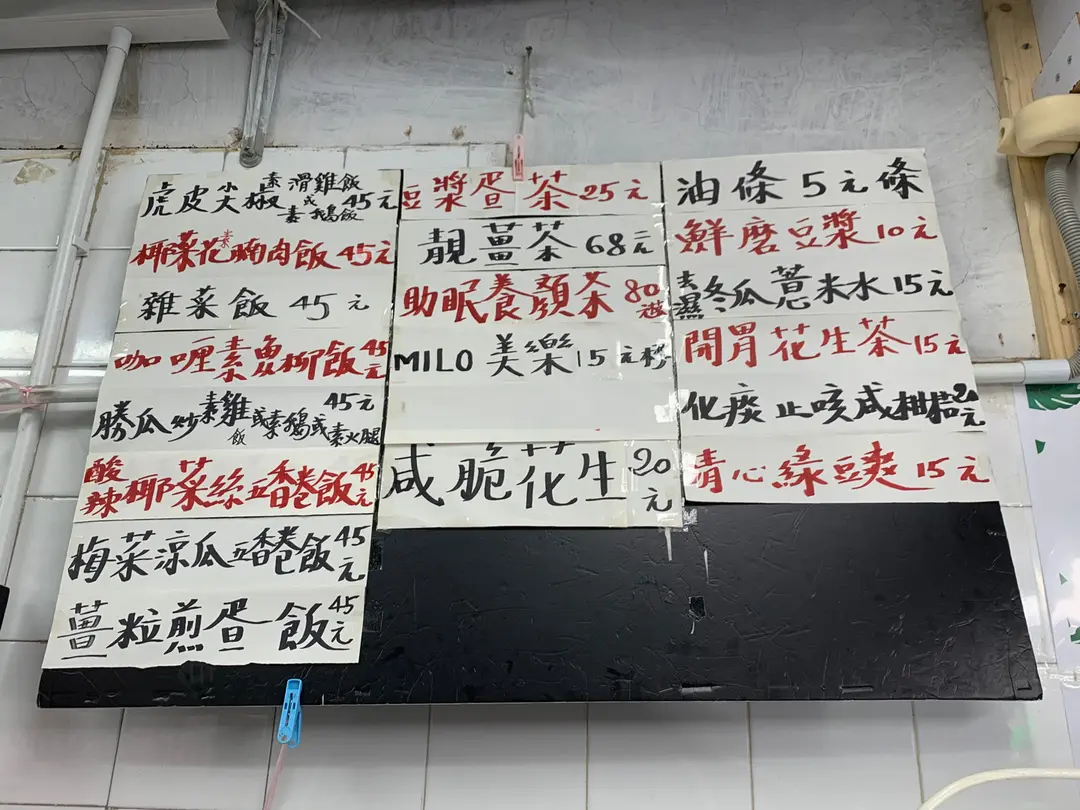 虎皮尖椒素滑雞飯或素鵝飯 45元
椰菜花素腩肉飯 45元
雜菜飯 45元
咖喱素魚柳飯 45元
勝瓜炒素雞飯或素鵝或素火腿 45元
酸辣椰菜絲五香卷飯 45元
梅菜涼瓜五香卷飯 45元
薑粒煎蛋飯 45元
豆漿蛋茶 25元
靚薑茶 68元
助眠養顏茶 80
MILO 美樂 15元
咸脆花生 20元
油條 5元條
鮮磨豆漿 10元
去濕冬瓜薏米水 15元
開胃花生茶 15元
化痰止咳咸柑桔 20元
清心綠豆爽 15元